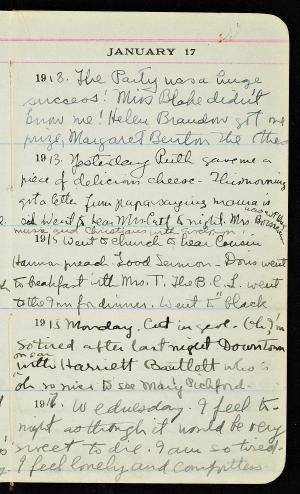 JANUARY 17
1913. The Party was a huge
success! Miss Blake didn't
know me! Helen Brandow got one
prize, Margaret Benton the other
1913 Yesterday Ruth gave me a
piece of delicious cheese - This morning
got a letter from papa saying mama is
Went to hear Mrs Catt to night. Mrs.
music and Christians with
191 Went to church to hear Cousin
Hannar preach. Good Sermon - Doris went
to breakfast with Mrs. T. The B.C.L. went
to the Inn for dinner. Went to "black
191 Monday. Cut in geol. Oh, I'm
so tired after last night Downtown
on car
with Harriett Bartlott who's
oh so nice to see Mary Pickford.
191 Wednesday. I feel to-
night as though it would be very
sweet to die. I am so tired.
I feel lonely and comfortless